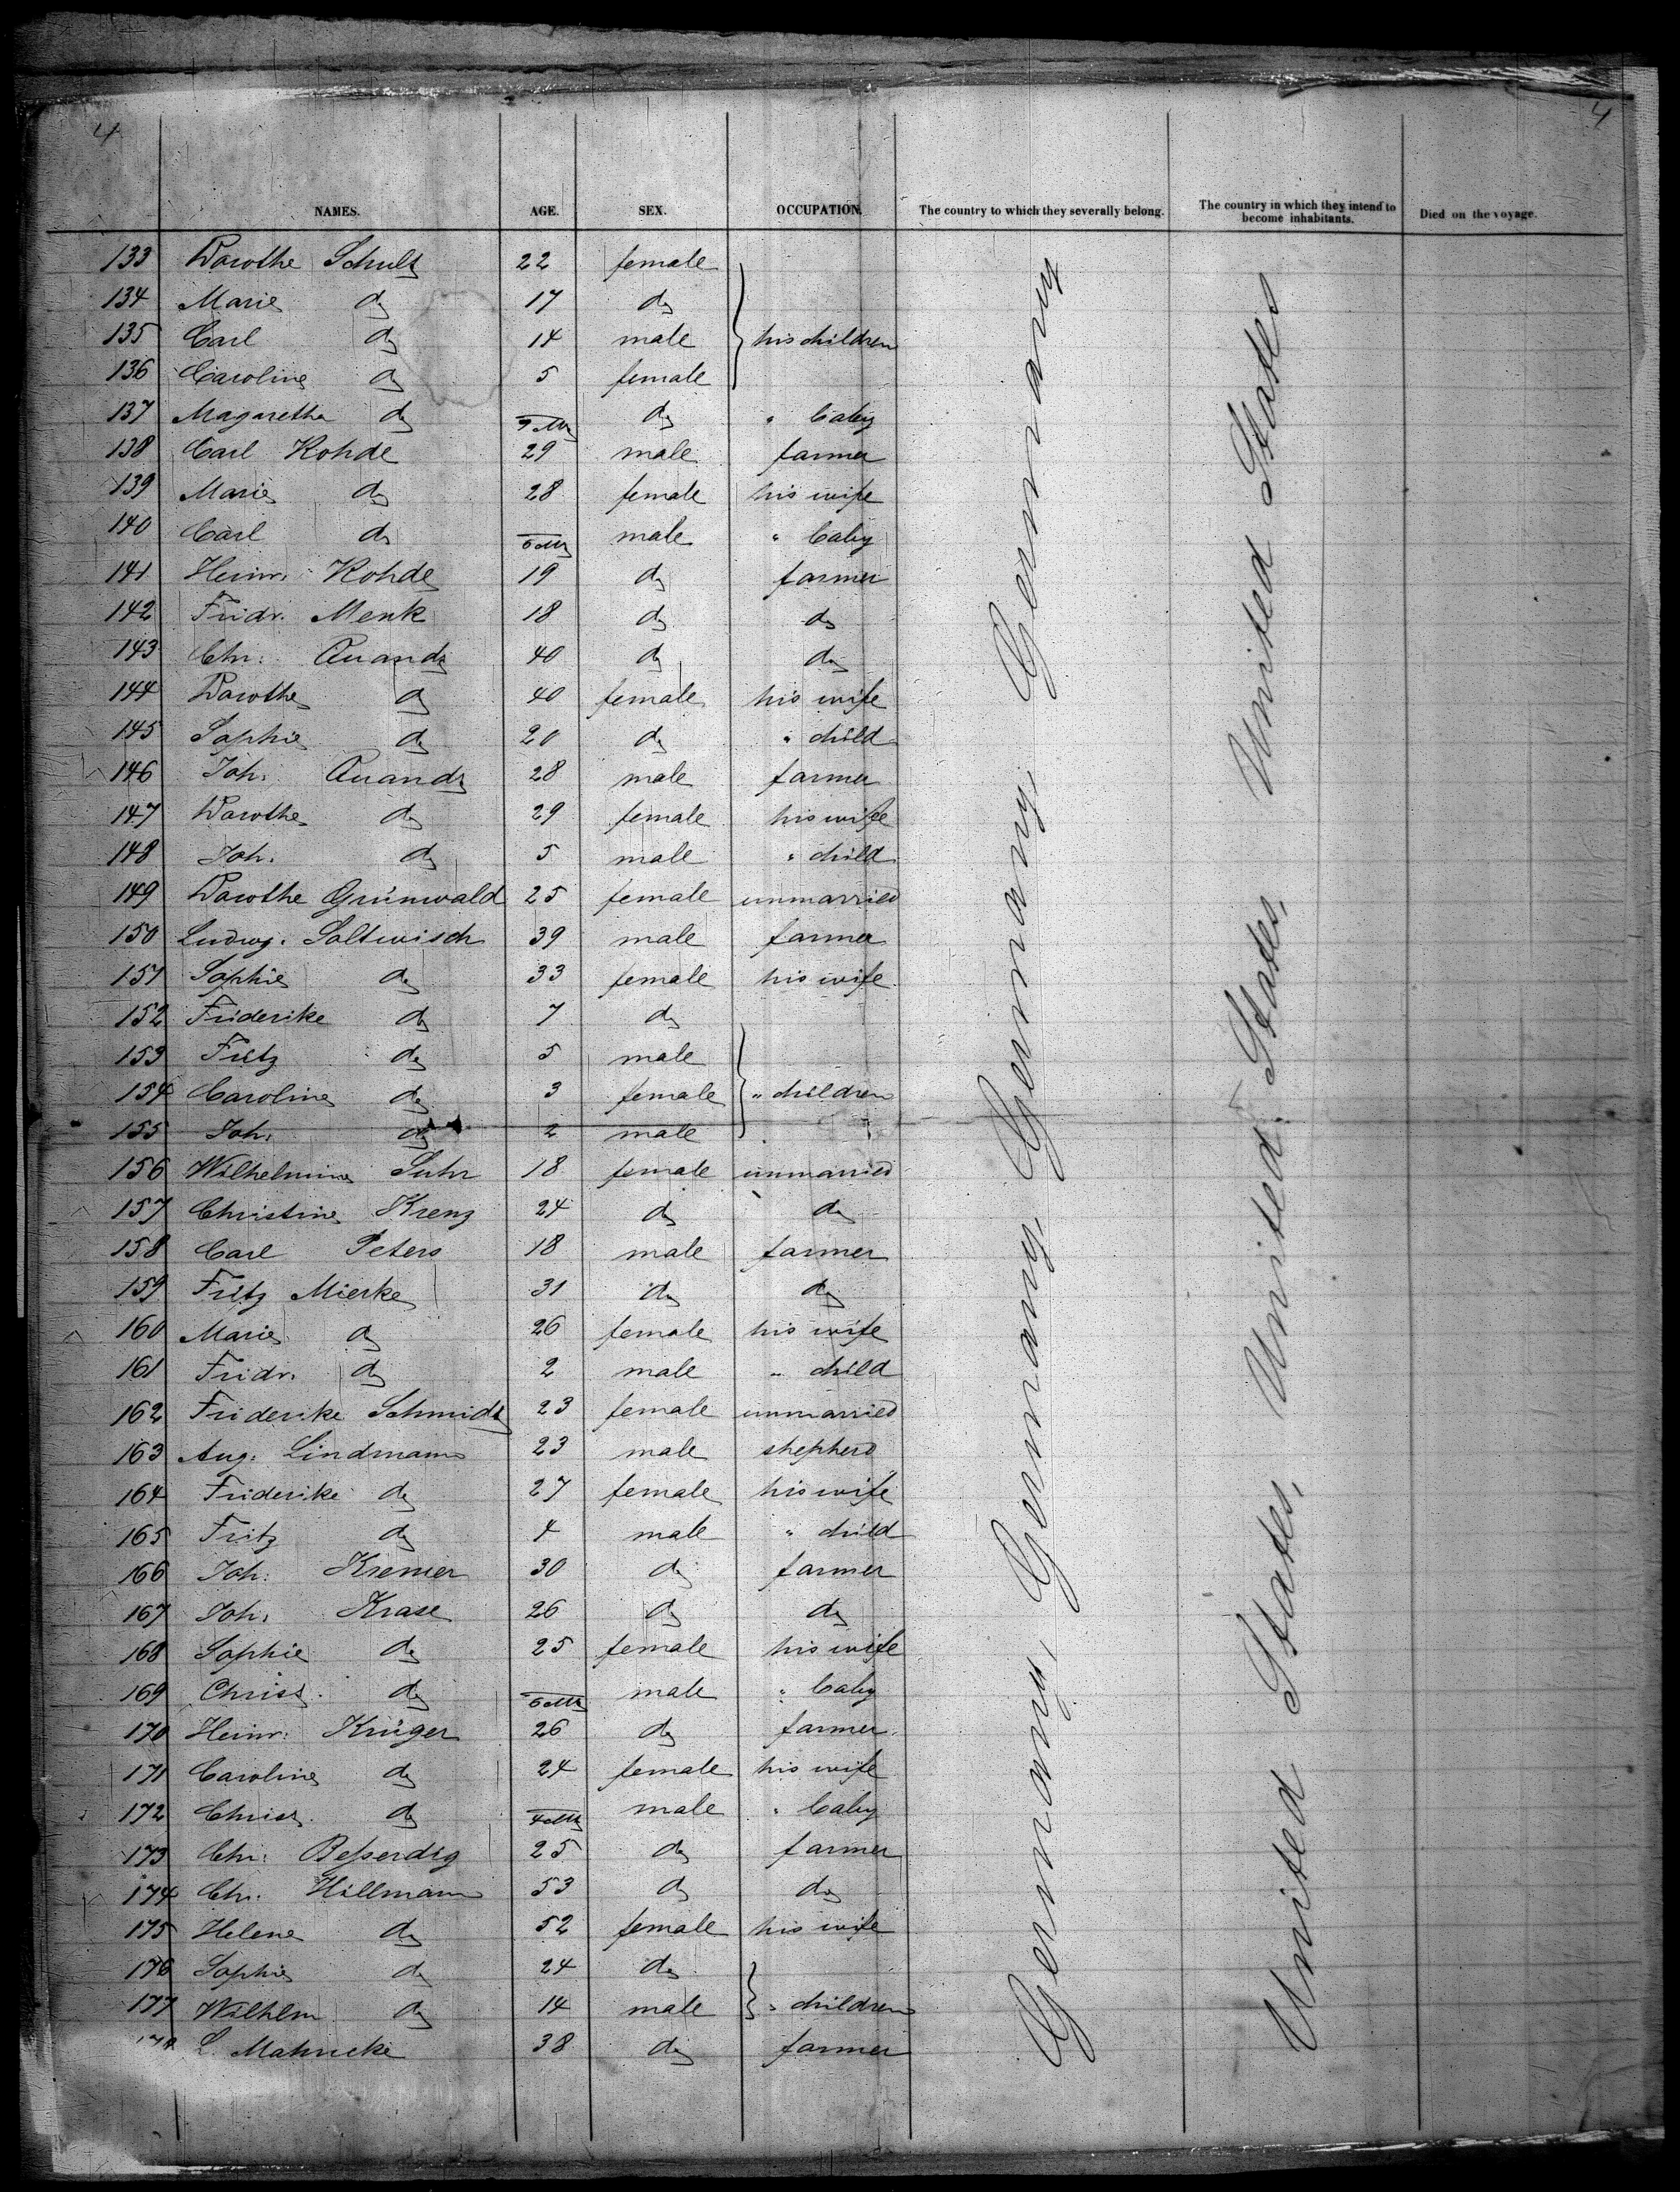 4 4
NAMES. AGE. SEX. OCCUPATION. The country to which they severally belong. The country in which they intend to become inhabitants. Died on the voyage.
133 Dorothe Schultz 22 female
134 Marie do 17 do
135 Carl do 14 male his children
136 Caroline do 5 female
137 Magaretha do 9 M do " baby
138 Carl Rohde 29 male farmer
139 Marie do 28 female his wife
140 Carl do 6 M male " baby
141 Heinr. Rohde 19 do farmer
142 Fridr. Menk 18 do do
143 Chr. Quandt 40 do do
144 Dorothe do 40 female his wife
145 Sophie do 20 do " child
146 Joh. Quandt 28 male farmer
147 Dorothe do 29 female his wife
148 Joh. do 5 male " child
149 Dorothe Grünwald 25 female unmarried
150 Ludwg. Saltwisch 39 male farmer
151 Sophie do 33 female his wife
152 Friderike do 7 do
153 Fritz do 5 male
154 Caroline do 3 female " children
155 Joh. do 2 male
156 Wilhelmine Suhr 18 female unmarried
157 Christine Krenz 24 do do
158 Carl Peters 18 male farmer
159 Fritz Mierke 31 do do
160 Marie do 26 female his wife
161 Fridr. do 2 male " child
162 Friderike Schmidt 23 female unmarried
163 Aug. Lindmann 23 male shepherd
164 Friderike do 27 female his wife
165 Fritz do 4 male " child
166 Joh. Kremer 30 do farmer
167 Joh. Krase 26 do do
168 Sophie do 25 female his wife
169 Christ. do 6 M male " baby
170 Heinr. Krüger 26 do farmer
171 Caroline do 24 female his wife
172 Christ. do 4 M male " baby
173 Chr. Beßerdig 25 do farmer
174 Chr. Hillmann 53 do do
175 Helene do 52 female his wife
176 Sophie do 24 do
177 Wilhlm do 14 male " children
178 L. Mahncke 38 do farmer
Germany, Germany, Germany, Germany
United States, United States, United States